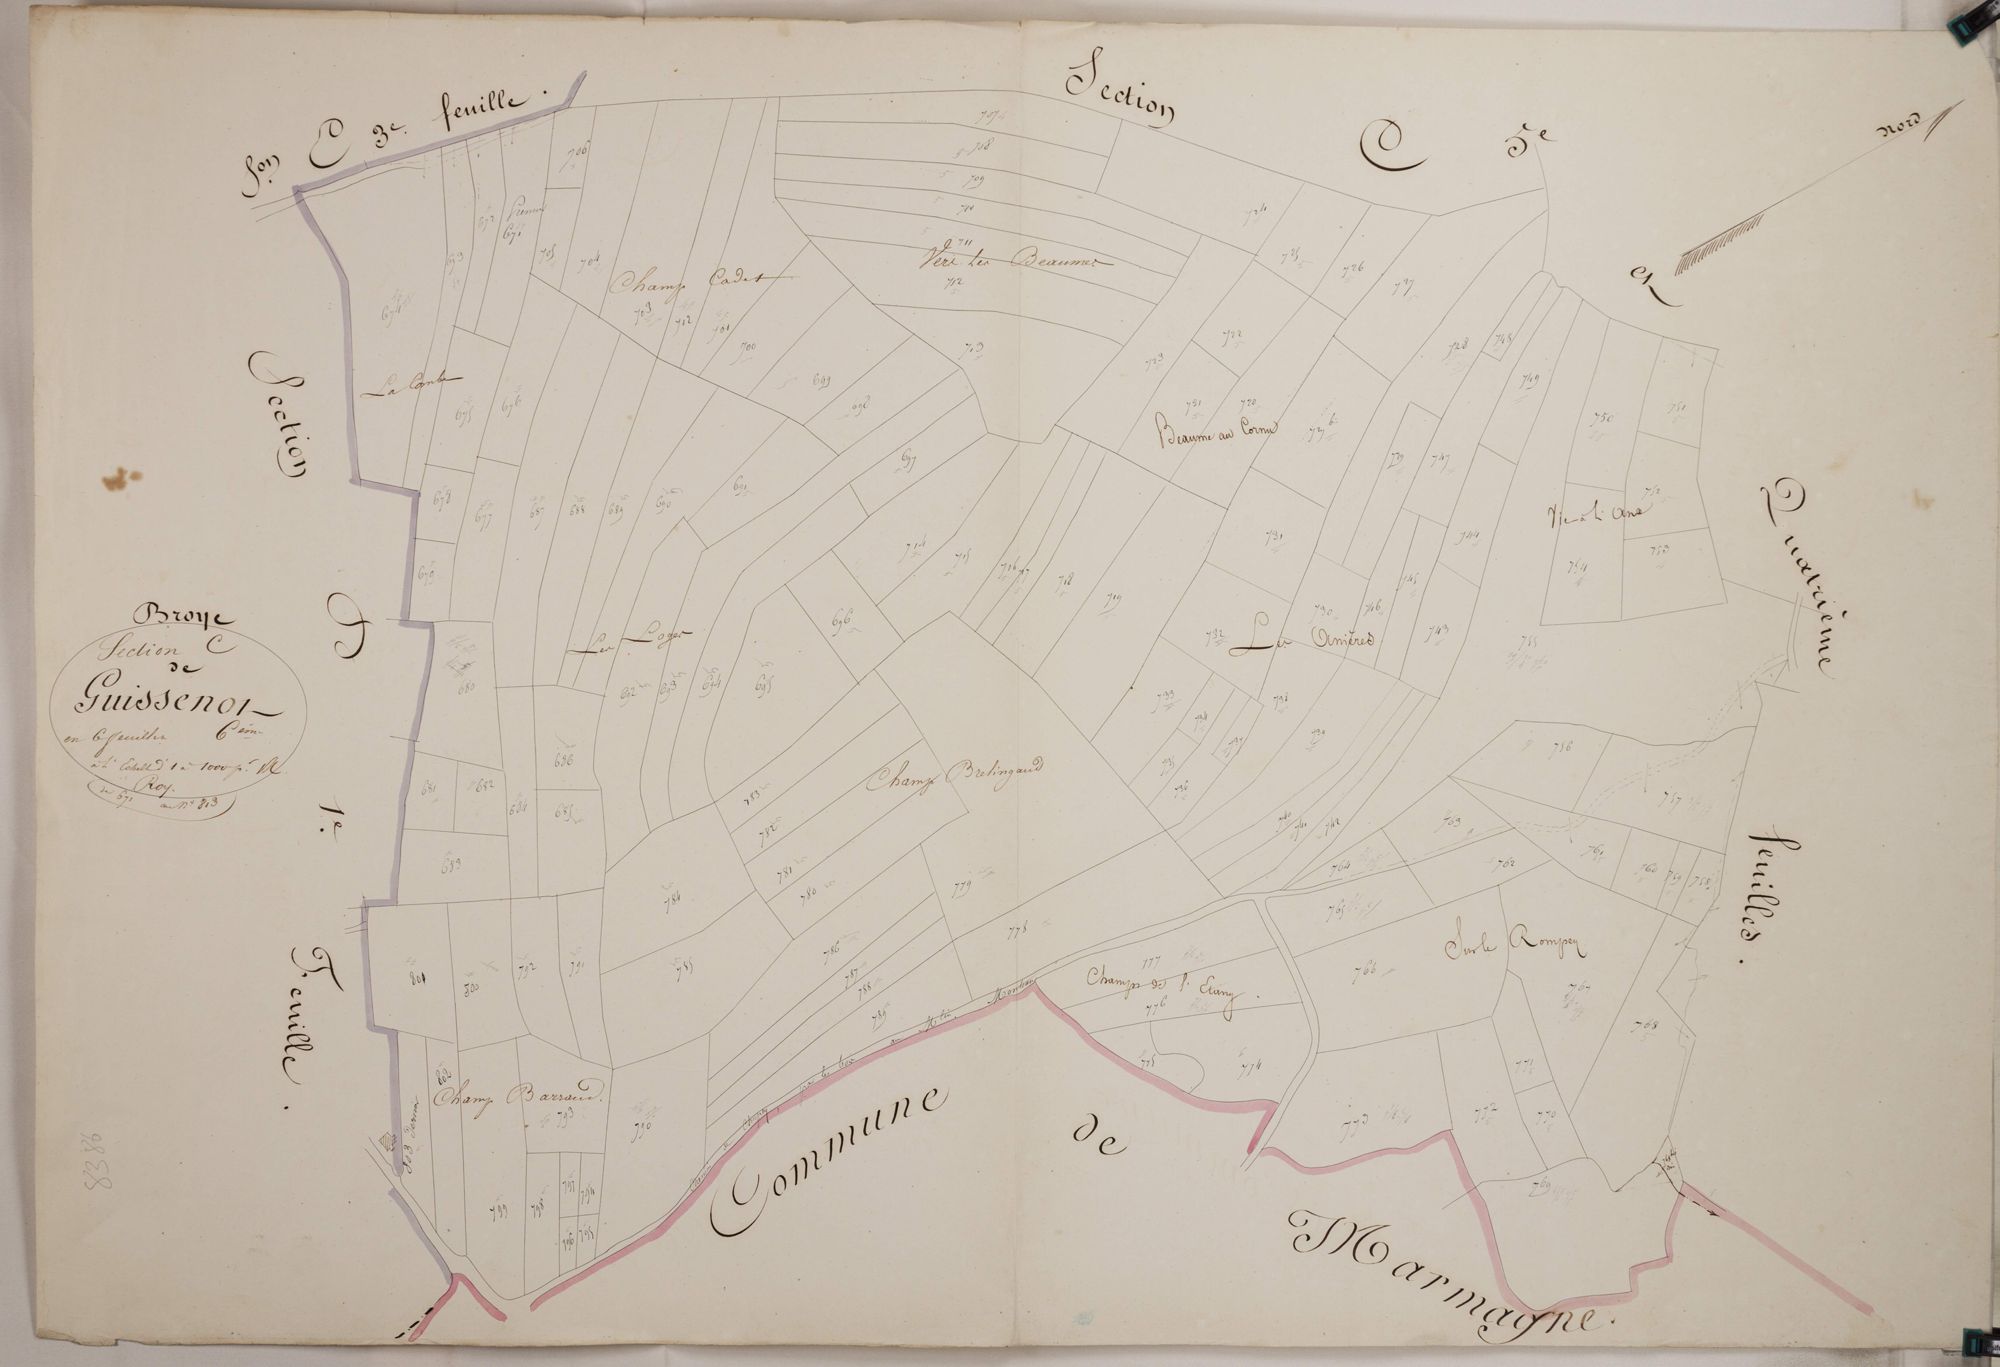 Son E 3e feuille.
Section C 5e
et
Quatrième
feuilles.
nord
Section
D
1e.
Feuille.
Broye
Section C
de
Guissenot
en 6 feuilles 6em
à l'Echelle d' 1 à 1000 pr. M.
Roy.
de 671 au No 803
8386
Commune de Marmagne.
La Combe
Champ Cadet
Vers les Beaumes
Beaume au Cornu
Les Anières
Les Loges
Champ Bretingaud
Champs de l'Etang.
Sur le Rompey
Champ Barraud.
Premier
671
672
673
674
675
676
677
678
679
680
681
682
683
684
685
686
687
688
689
690
691
692
693
694
695
696
697
698
699
700
701
702
703
704
705
706
707
708
709
710
711
712
713
714
715
716
717
718
719
720
721
722
723
724
725
726
727
728
729
730
731
732
733
734
735
736
737
738
739
740
741
742
743
744
745
746
747
748
749
750
751
752
753
754
755
756
757
758
759
760
761
762
763
764
765
766
767
768
769
770
771
772
773
774
775
776
777
778
779
780
781
782
783
784
785
786
787
788
789
790
791
792
793
794
795
796
797
798
799
800
801
802
803 Dernier